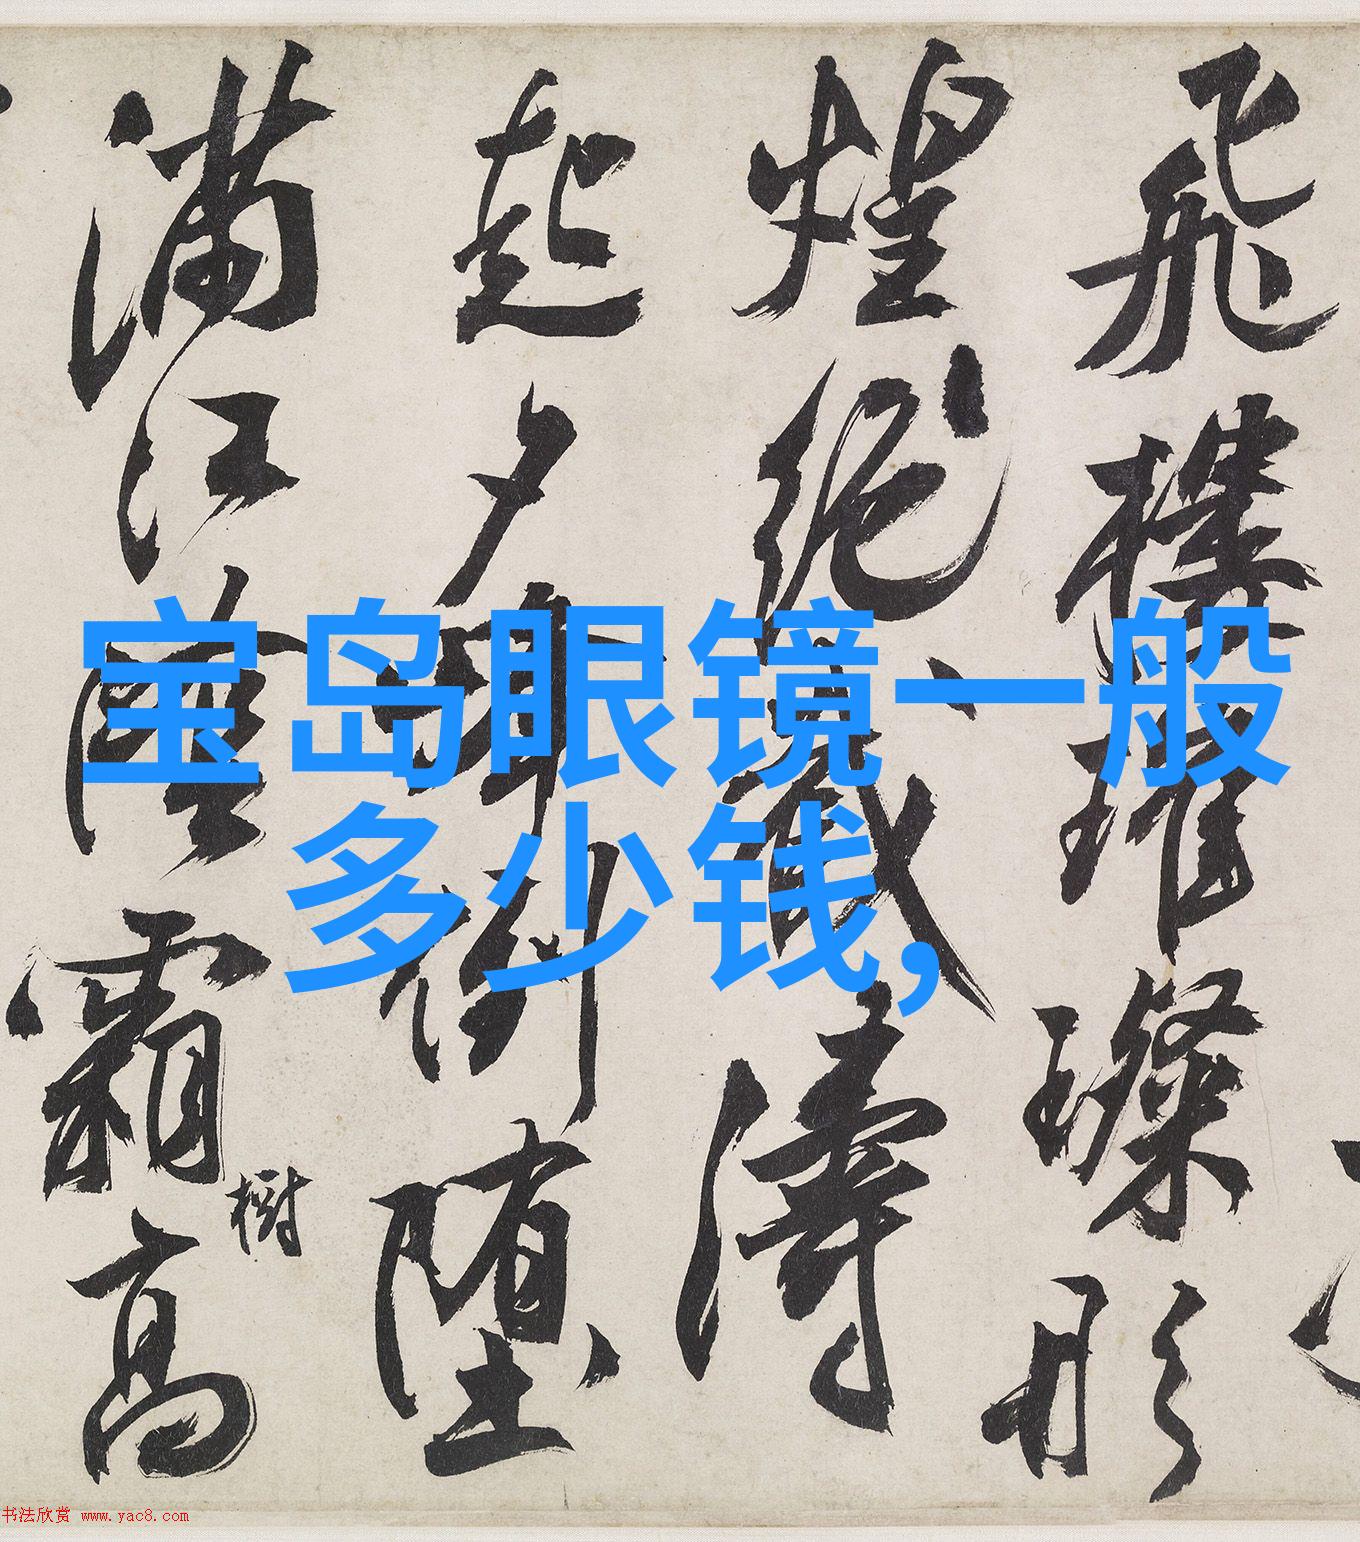 飛樓耀璨形
煌絕濤
起夕墮
滿江霜高
樹
宝岛眼镜一般
多少钱,
书法欣赏 www.yac8.com